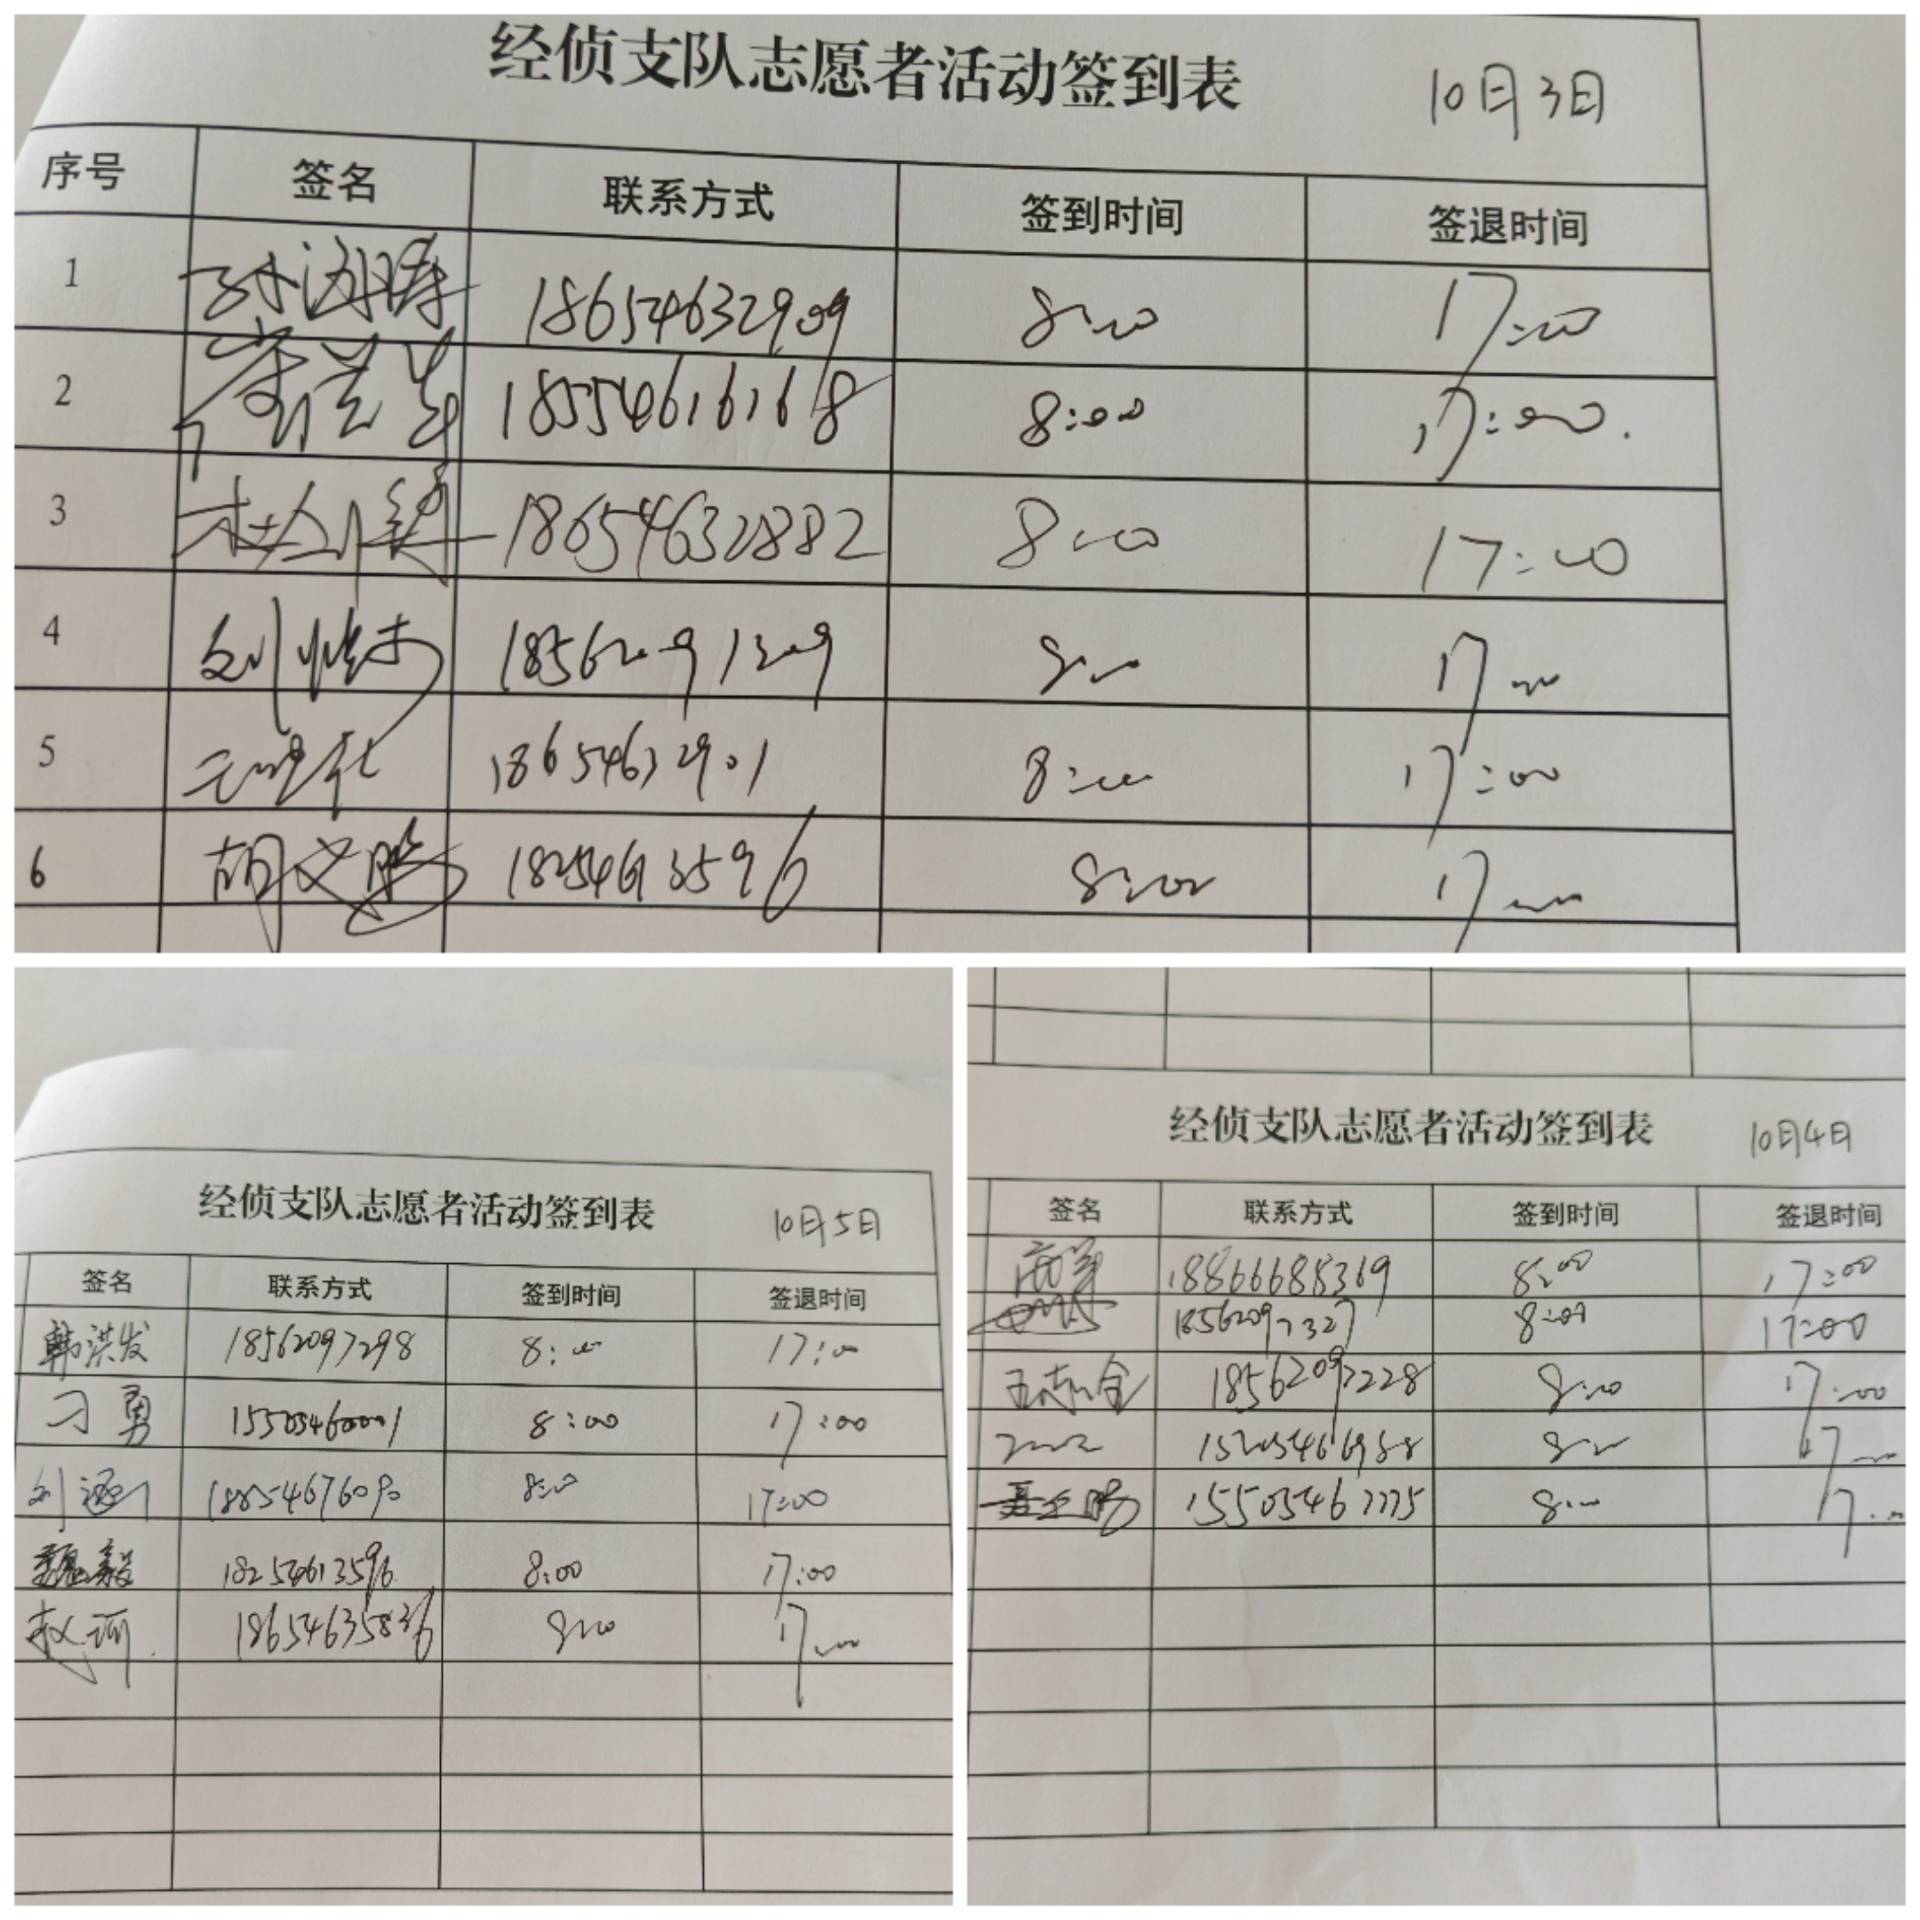 经侦支队志愿者活动签到表 10月3日
序号 签名 联系方式 签到时间 签退时间
1 18654632909 8:00 17:00
2 18554616168 8:00 17:00.
3 18654632882 8:00 17:00
4 8:00 17:00
5 18654632901 8:00 17:00
6 胡文鹏 18254613596 8:00 17:00
经侦支队志愿者活动签到表 10月5日
签名 联系方式 签到时间 签退时间
韩洪发 18562097298 8:00 17:00
刁勇 15505460001 8:00 17:00
刘 18854676090 8:00 17:00
魏毅 18254613596 8:00 17:00
赵 18654635836 8:00 17:00
经侦支队志愿者活动签到表 10月4日
签名 联系方式 签到时间 签退时间
18866685369 8:00 17:00
18562097327 8:00 17:00
王志全 18562097228 8:00 17:00
8:00 17:00
15505467775 8:00 17:00